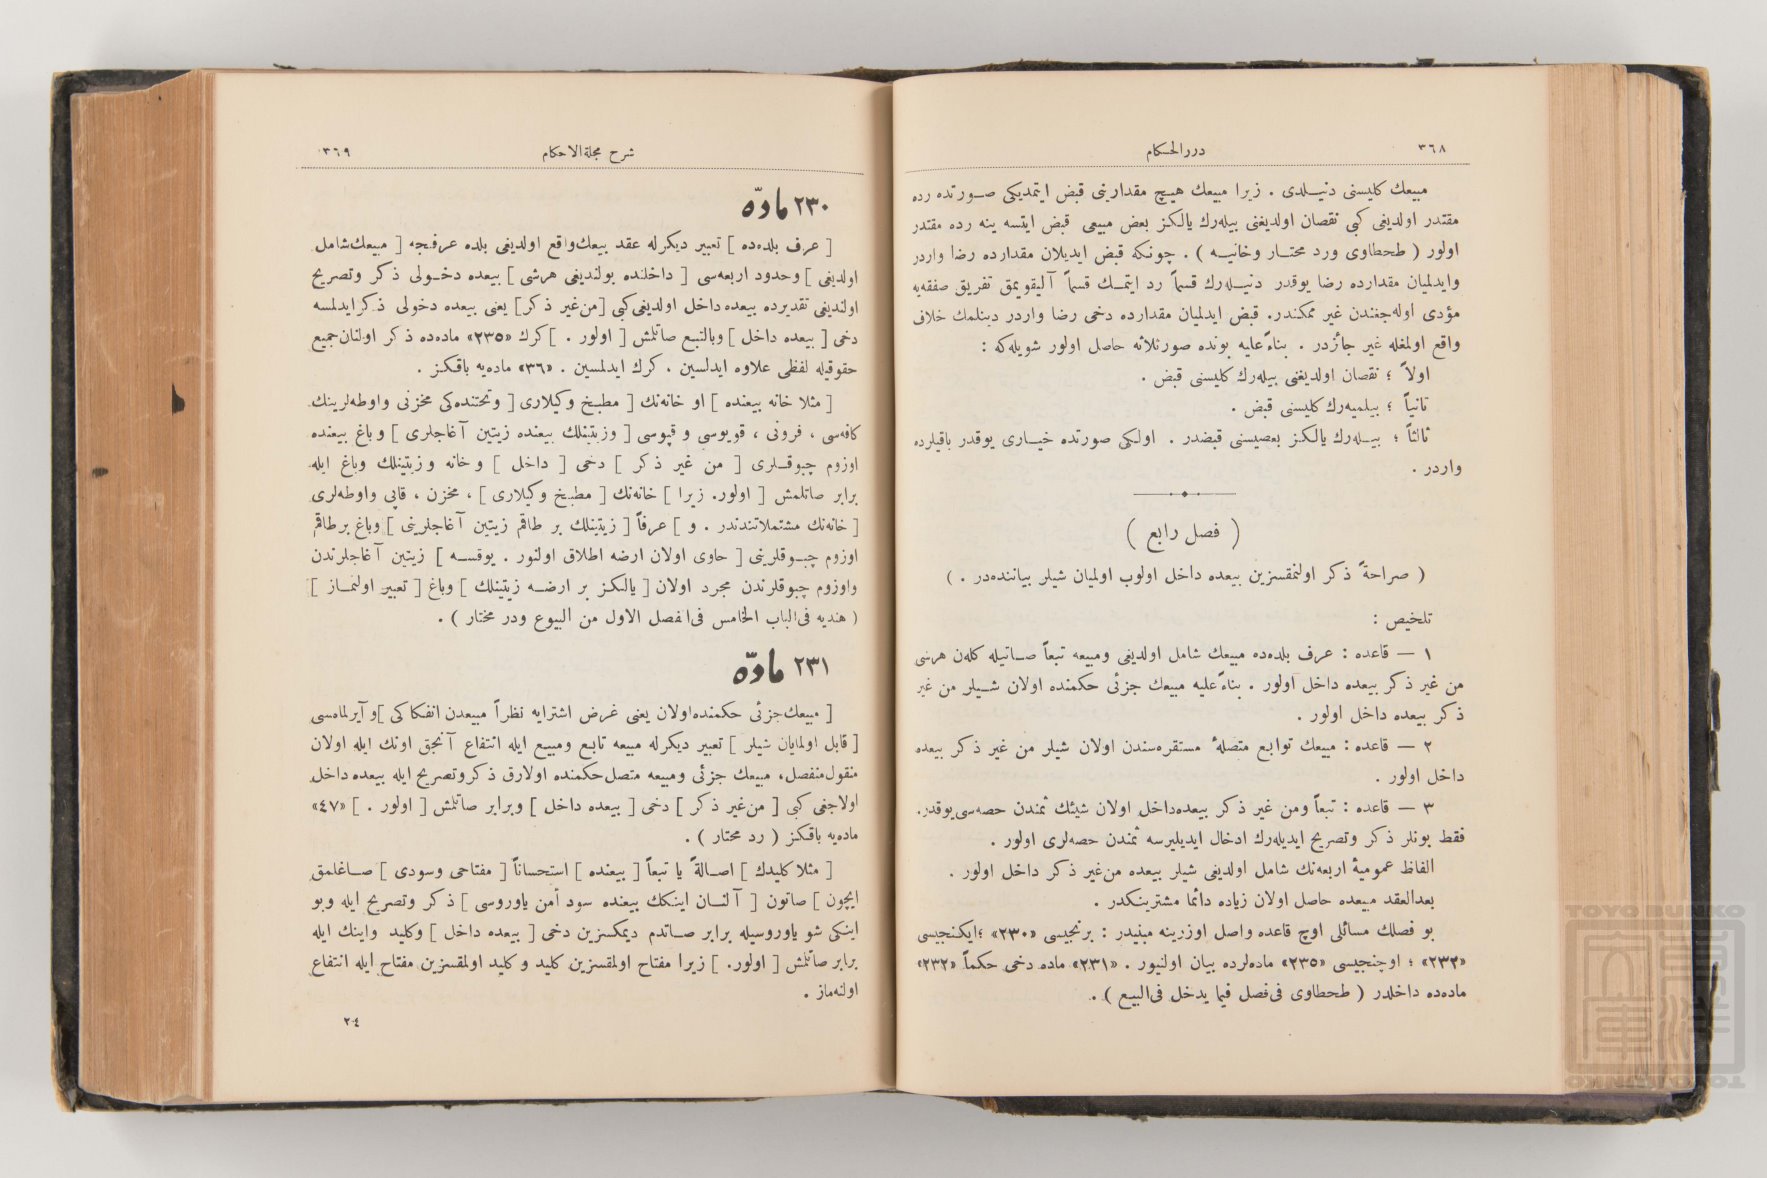 ٣٦٨
دررالحكام
مبيعك كليسنى دنيلدى . زيرا مبيعك هيچ مقدارينى قبض ايتمديكى صورتده رده
مقتدر اولديغى كبى نقصان اولديغنى بيله‌رك يالكز بعض مبيعى قبض ايتسه ينه رده مقتدر
اولور ( طحطاوى ورد محتار وخانيه ) . چونكه قبض ايديلان مقدارده رضا واردر
وايدلميان مقدارده رضا يوقدر دنيله‌رك قسماً رد ايتمك قسماً آليقويمق تفريق صفقه‌يه
مؤدى اوله‌جغندن غير ممكندر. قبض ايدلميان مقدارده دخى رضا واردر دينلمك خلاف
واقع اولمغله غير جائزدر . بناءً عليه بونده صورثلاثه حاصل اولور شويله‌كه :
اولاً ؛ نقصان اولديغنى بيله‌رك كليسنى قبض .
ثانياً ؛ بيلميه‌رك كليسنى قبض .
ثالثاً ؛ بيله‌رك يالكز بعضيسنى قبضدر . اولكى صورتده خيارى يوقدر باقيلرده
واردر .
( فصل رابع )
( صراحةً ذكر اولنمقسزين بيعده داخل اولوب اولميان شيلر بياننده‌در . )
تلخيص :
١ — قاعده : عرف بلده‌ده مبيعك شامل اولديغى ومبيعه تبعاً صاتيله كلن هرشى
من غير ذكر بيعده داخل اولور . بناءً عليه مبيعك جزئى حكمنده اولان شيلر من غير
ذكر بيعده داخل اولور .
٢ — قاعده : مبيعك توابع متصلهٔ مستقره‌سندن اولان شيلر من غير ذكر بيعده
داخل اولور .
٣ — قاعده : تبعاً ومن غير ذكر بيعده‌داخل اولان شيئك ثمندن حصه‌سى‌يوقدر.
فقط بونلر ذكر وتصريح ايديله‌رك ادخال ايديليرسه ثمندن حصه‌لرى اولور .
الفاظ عموميهٔ اربعه‌نك شامل اولديغى شيلر بيعده من‌غير ذكر داخل اولور .
بعدالعقد مبيعده حاصل اولان زياده دائما مشترينكدر .
بو فصلك مسائلى اوچ قاعده واصل اوزرينه مبنيدر : برنجيسى «٢٣٠» ؛ايكنجيسى
«٢٣٢» ؛ اوچنجيسى «٢٣٥» ماده‌لرده بيان اولنيور . «٢٣١» ماده دخى حكماً «٢٣٢»
ماده‌ده داخلدر ( طحطاوى فى‌فصل فيما يدخل فى‌البيع ) .
شرح مجلةالاحكام
٣٦٩
٢٣٠ مادّه
[ عرف بلده‌ده ] تعبير ديكرله عقد بيعك‌واقع اولديغى بلده عرفنجه [ مبيعك‌شامل
اولديغى ] وحدود اربعه‌سى [ داخلنده بولنديغى هرشى ] بيعده دخولى ذكر وتصريح
اولنديغى تقديرده بيعده داخل اولديغى‌كبى [من‌غير ذكر] يعنى بيعده دخولى ذكرايدلمسه
دخى [ بيعده داخل ] وبالتبع صاتلمش [ اولور . ] كرك «٢٣٥» ماده‌ده ذكر اولنان‌جميع
حقوقيله لفظى علاوه ايدلسين ، كرك ايدلمسين . «٣٦» ماده‌يه باقكز .
[ مثلا خانه بيعنده ] او خانه‌نك [ مطبخ وكيلارى [ وتحتنده‌كى مخزنى واوطه‌لرينك
كافه‌سى ، فرونى ، قويوسى و قپوسى [ وزيتينلك بيعنده زيتين آغاجلرى ] وباغ بيعنده
اوزوم چبوقلرى [ من غير ذكر ] دخى [ داخل ] وخانه وزيتينلك وباغ ايله
برابر صاتلمش [ اولور. زيرا ] خانه‌نك [ مطبخ وكيلارى ] ، مخزن ، قاپى واوطه‌لرى
[ خانه‌نك مشتملاتندندر . و ] عرفاً [ زيتينلك بر طاقم زيتين آغاجلرينى ] وباغ برطاقم
اوزوم چبوقلرينى [ حاوى اولان ارضه اطلاق اولنور . يوقسه ] زيتين آغاجلرندن
واوزوم چبوقلرندن مجرد اولان [ يالكز بر ارضه زيتينلك ] وباغ [ تعبير اولنماز ]
( هنديه فى‌الباب الخامس فى‌الفصل الاول من البيوع ودر مختار ) .
٢٣١ مادّه
[ مبيعك‌جزئى حكمنده‌اولان يعنى غرض اشترايه نظراً مبيعدن انفكاكى ] و آيرلماه‌سى
[ قابل اولمايان شيلر ] تعبير ديكرله مبيعه تابع ومبيع ايله انتفاع آنجق اونك ايله اولان
منقول‌منفصل، مبيعك جزئى ومبيعه متصل‌حكمنده اولارق ذكروتصريح ايله بيعده داخل
اولاجغى كبى [ من‌غير ذكر ] دخى [ بيعده داخل ] وبرابر صاتلمش [ اولور . ] «٤٧»
ماده‌يه باقكز ( رد محتار ) .
[ مثلا كليدك ] اصالةً يا تبعاً [ بيعنده ] استحساناً [ مفتاحى وسودى ] صاغلمق
ايچون ] صاتون [ آلنان اينكك بيعنده سود أمن ياوروسى ] ذكر وتصريح ايله وبو
اينكى شو ياوروسيله برابر صاتدم ديمكسزين دخى [ بيعده داخل ] وكليد واينك ايله
برابر صاتلمش [ اولور. ] زيرا مفتاح اولمقسزين كليد و كليد اولمقسزين مفتاح ايله انتفاع
اولنه‌ماز .
٢٤
TOYO BUNKO